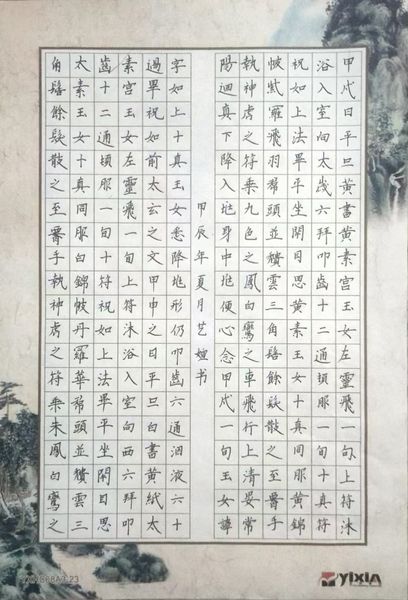 甲戌日平旦黄書黄素宮玉女左靈飛一旬上符沐
浴入室向太歲六拜叩齒十二通頓服一旬十真符
祝如上法畢平坐閉目思黄素玉女十真同服黄錦
帔紫羅飛羽帬頭並頽雲三角髻餘髮散之至腰手
執神虎之符乗九色之鳳白鸞之車飛行上清晏常
陽迴真下降入兆身中兆便心念甲戌一旬玉女諱
甲辰年夏月艺媗书
字如上十真玉女悉降兆形仍叩齒六通咽液六十
過畢祝如前太玄之文甲申之日平旦白書黄紙太
素宮玉女左靈飛一旬上符沐浴入室向西六拜叩
齒十二通頓服一旬十符祝如上法畢平坐閉目思
太素玉女十真同服白錦帔丹羅華帬頭並頽雲三
角髻餘髮散之至腰手執神虎之符乗朱鳳白鸞之
YIXIA